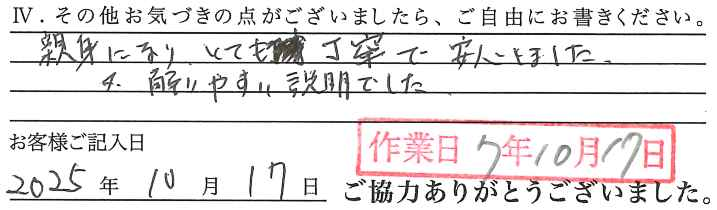 Ⅳ．その他お気づきの点がございましたら、ご自由にお書きください。
親身になり、とても丁寧で安心しました。
解りやすい説明でした
お客様ご記入日
作業日 7年10月17日
2025年10月17日 ご協力ありがとうございました。